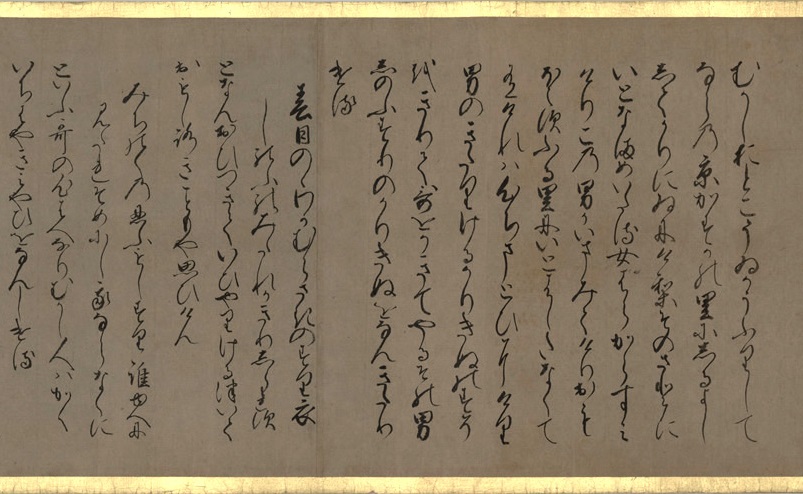 むかしおとこうゐかうふりして
ならの京かすかの里にしるよし
してかりにいにけりそのさとに
いとなまめいたる女はらからすみ
けりこの男かいまみてけりおも
ほえすふる里にいとはしたなくて
ありけれは心ちまとひにけり
男のきたりけるかりきぬのすそ
をきりて哥をかきてやるその男
しのふすりのかりきぬをなんきたり
ける
春日のゝわかむらさきのすり衣
しのふのみたれかきりしられす
となんおひつきていひやりけるついて
おもしろきことともや思ひけん
みちのくの忍ふもちすり誰ゆへに
みたれそめにし我ならなくに
といふ哥の心はへなりむかし人はかく
いちはやきみやひをなんしける